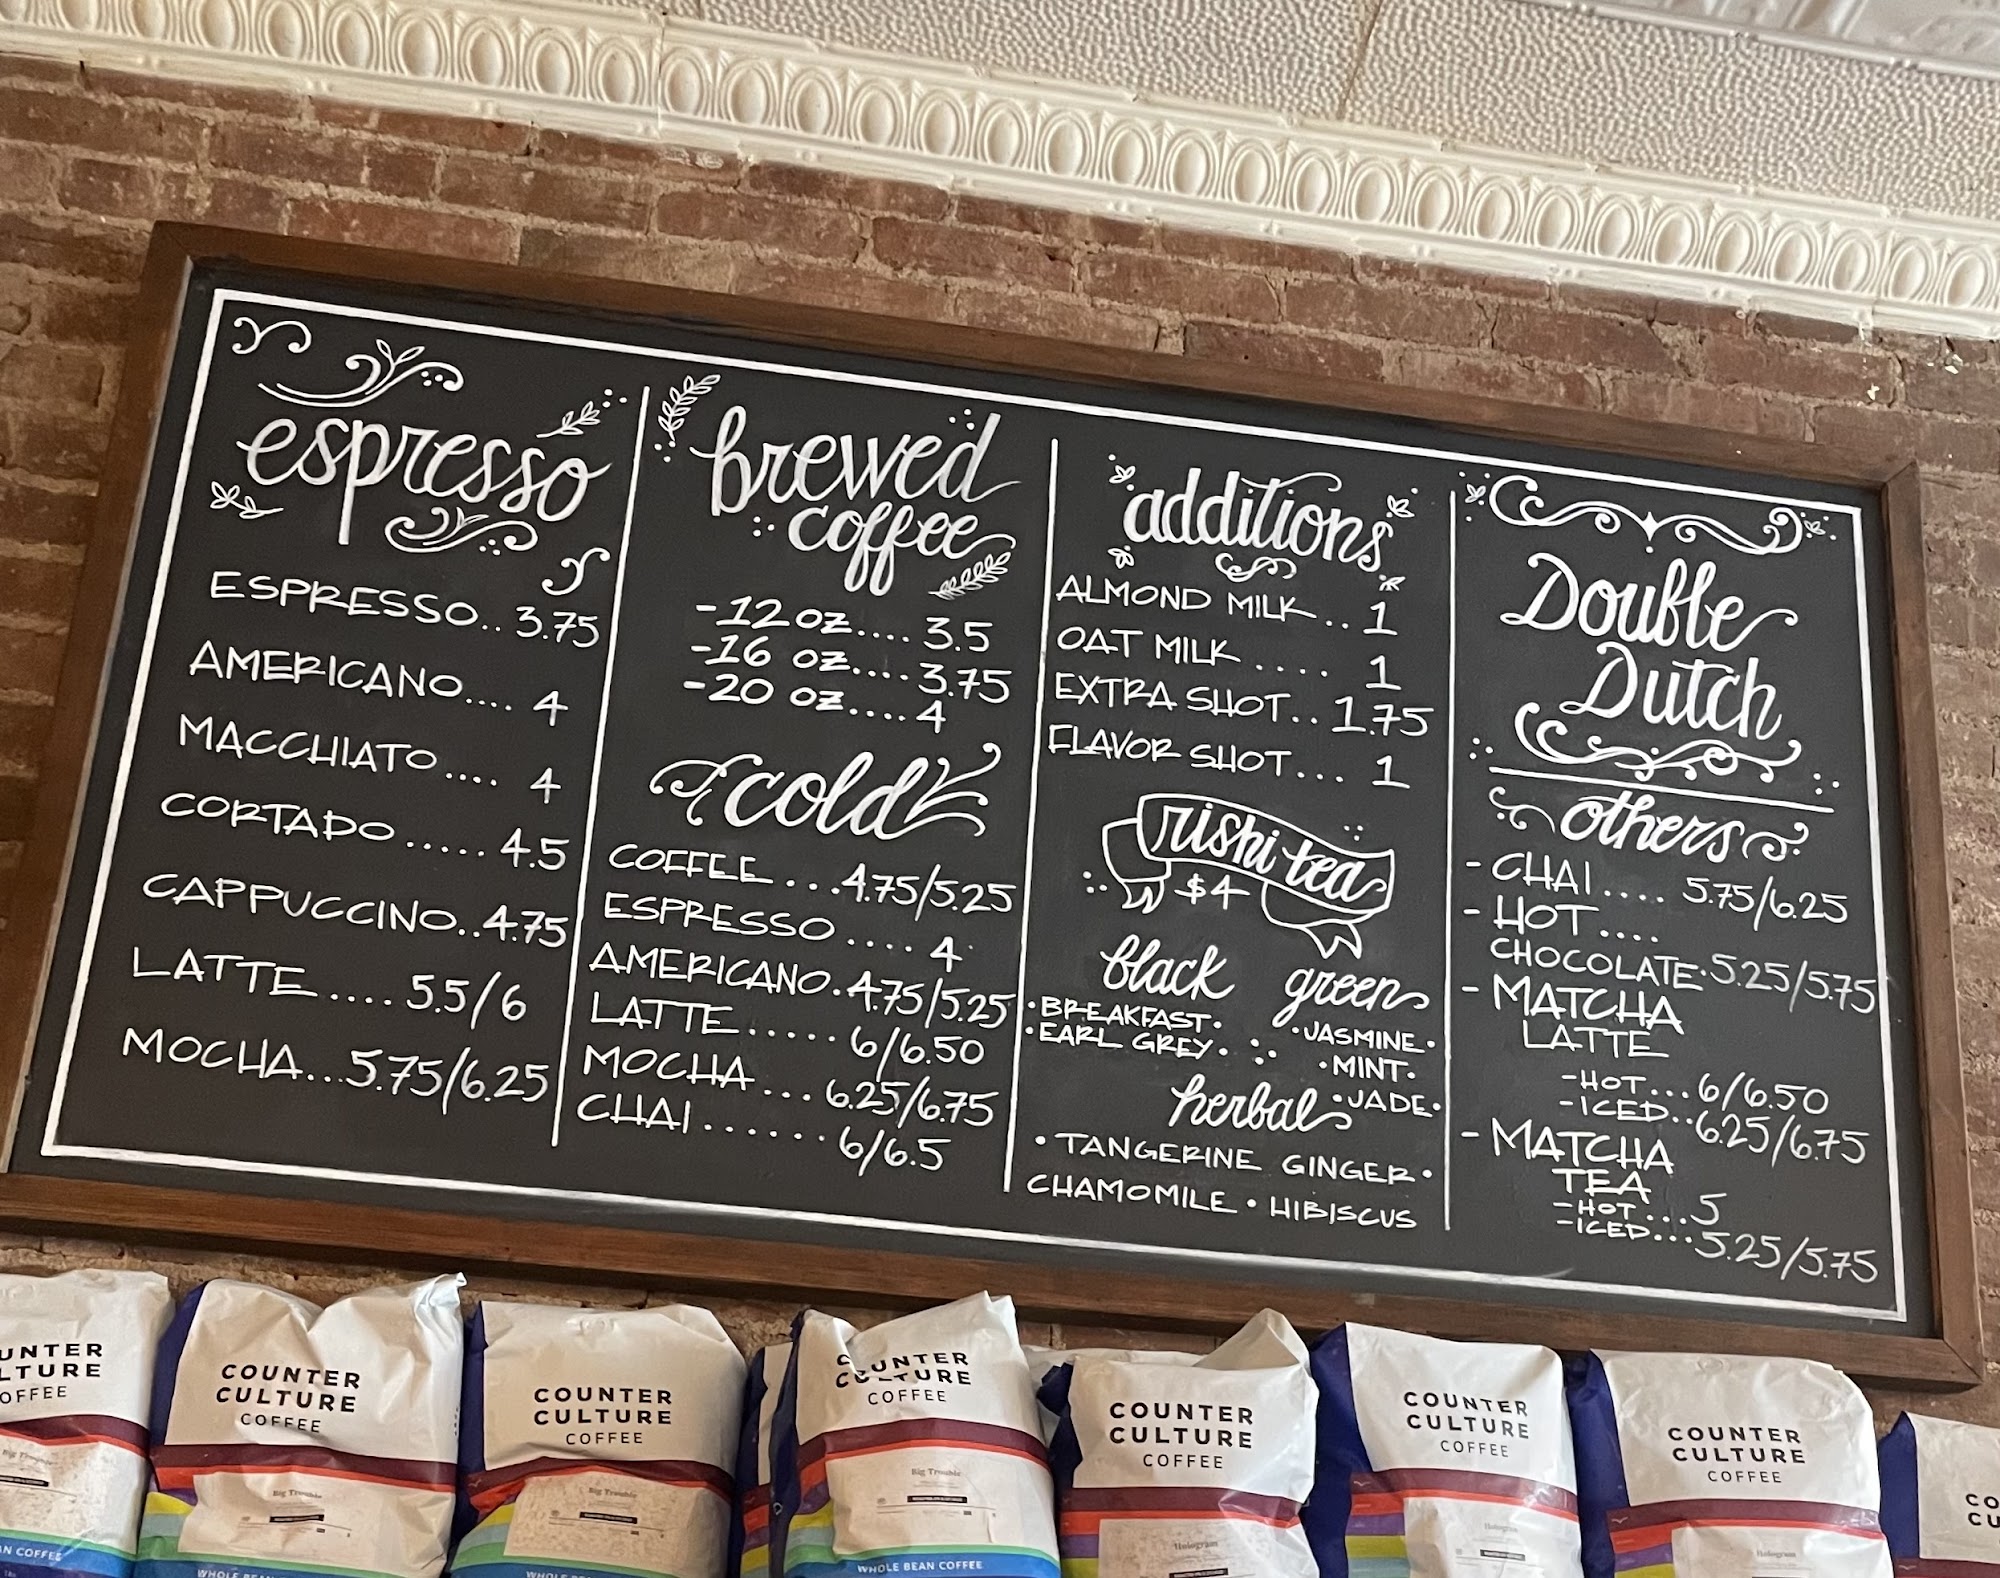 espresso
ESPRESSO..3.75
AMERICANO.... 4
MACCHIATO.... 4
CORTADO ..... 4.5
CAPPUCCINO..4.75
LATTE.... 5.5/6
MOCHA...5.75/6.25
brewed
coffee
-12 oz.... 3.5
-16 oz.... 3.75
-20 oz.... 4
cold
COFFEE ...4.75/5.25
ESPRESSO .... 4
AMERICANO.4.75/5.25
LATTE..... 6/6.50
MOCHA ... 6.25/6.75
CHAI...... 6/6.5
additions
ALMOND MILK.. 1
OAT MILK .... 1
EXTRA SHOT.. 1.75
FLAVOR SHOT... 1
rishi tea
$4
black
• BREAKFAST •
• EARL GREY •
green
• JASMINE •
• MINT •
• JADE •
herbal
• TANGERINE GINGER •
CHAMOMILE • HIBISCUS
Double
Dutch
others
- CHAI.... 5.75/6.25
- HOT ....
CHOCOLATE.5.25/5.75
- MATCHA
LATTE
-HOT...6/6.50
-ICED..6.25/6.75
- MATCHA
TEA
-HOT...5
-ICED...5.25/5.75
UNTER
LTURE
OFFEE
Big Trouble
AN COFFEE
COUNTER
CULTURE
COFFEE
Big Trouble
WHOLE BEAN
COUNTER
CULTURE
COFFEE
Big Trouble
WHOLE BEAN COFFEE
COUNTER
CULTURE
COFFEE
Big Trouble
WHOLE BEAN COFFEE
COUNTER
CULTURE
COFFEE
Hologram
COUNTER
CULTURE
COFFEE
Hologram
COUNTER
CULTURE
COFFEE
Hologram
CO
CU